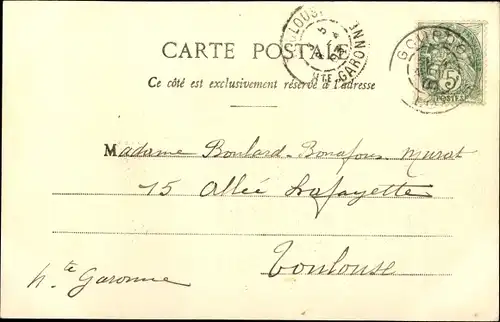 CARTE POSTALE
Ce côté est exclusivement réservé à l'adresse
Madame Boulard-Bonafous Murat
15 Allée Lafayette
Toulouse
h.te Garonne
TOULOUSE
GARONNE
HTE
5
POSTES